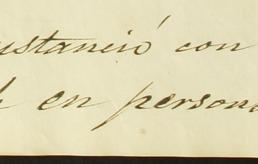 ustanció con
en person